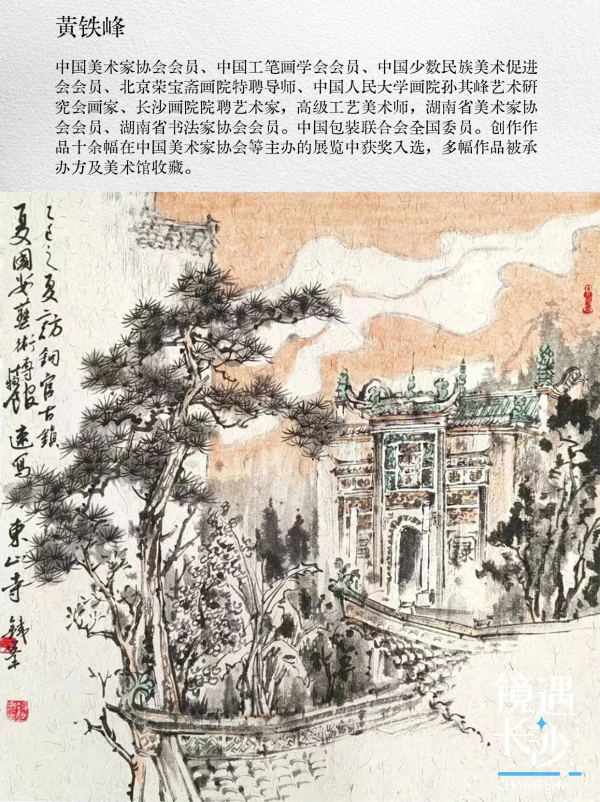 黄铁峰
中国美术家协会会员、中国工笔画学会会员、中国少数民族美术促进
会会员、北京荣宝斋画院特聘导师、中国人民大学画院孙其峰艺术研
究会画家、长沙画院院聘艺术家，高级工艺美术师，湖南省美术家协
会会员、湖南省书法家协会会员。中国包装联合会全国委员。创作作
品十余幅在中国美术家协会等主办的展览中获奖入选，多幅作品被承
办方及美术馆收藏。
乙巳之夏访铜官古镇
夏国安艺術博馆
速写
東山寺
镜遇
长沙
CHANGSHA